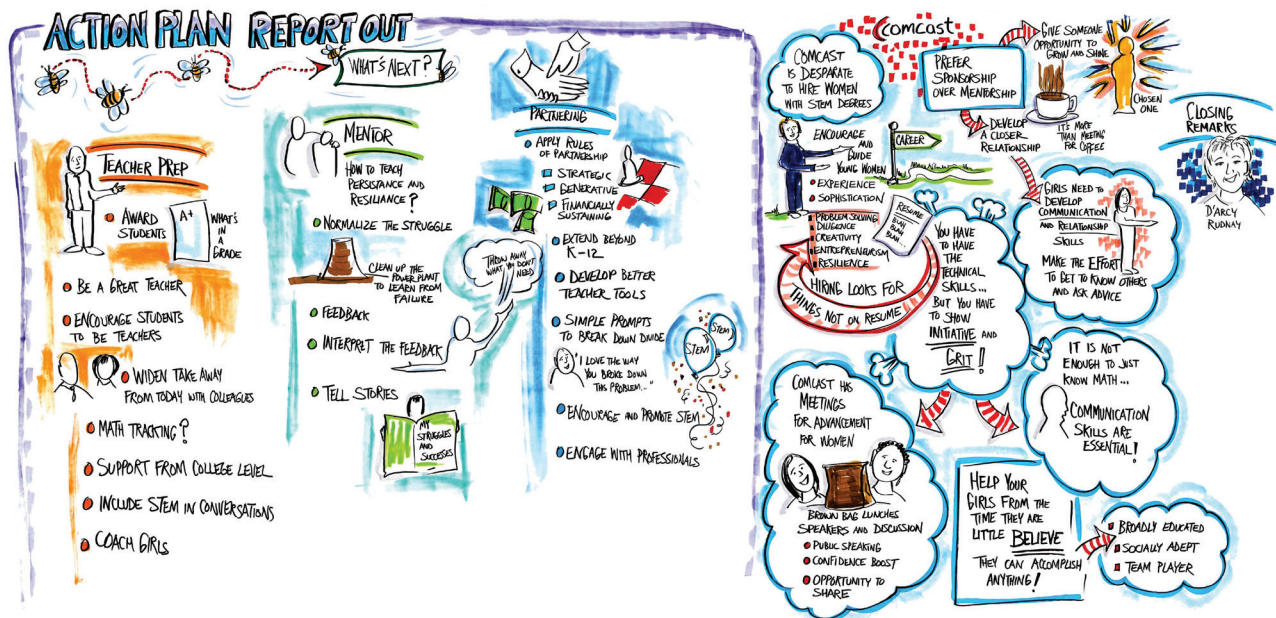 ACTION PLAN REPORT OUT
WHAT'S NEXT?
TEACHER PREP
AWARD
STUDENTS
A+
WHAT'S
IN A
GRADE
BE A GREAT TEACHER
ENCOURAGE STUDENTS
TO BE TEACHERS
WIDEN TAKE AWAY
FROM TODAY WITH COLLEAGUES
MATH TRACKING?
SUPPORT FROM COLLEGE LEVEL
INCLUDE STEM IN CONVERSATIONS
COACH GIRLS
MENTOR
HOW TO TEACH
PERSISTANCE AND
RESILIANCE?
NORMALIZE THE STRUGGLE
CLEAN UP THE
POWER PLANT
TO LEARN FROM
FAILURE
FEEDBACK
INTERPRET THE FEEDBACK
TELL STORIES
MY
STRUGGLES
AND
SUCCESSES
THROW AWAY
WHAT YOU DON'T
NEED
PARTNERING
APPLY RULES
OF PARTNERSHIP
STRATEGIC
GENERATIVE
FINANCIALLY
SUSTAINING
EXTEND BEYOND
K-12
DEVELOP BETTER
TEACHER TOOLS
SIMPLE PROMPTS
TO BREAK DOWN DIVIDE
"I LOVE THE WAY
YOU BROKE DOWN
THIS PROBLEM..."
STEM
STEM
ENCOURAGE AND PROMOTE STEM
ENGAGE WITH PROFESSIONALS
comcast
COMCAST
IS DESPARATE
TO HIRE WOMEN
WITH STEM DEGREES
PREFER
SPONSORSHIP
OVER MENTORSHIP
GIVE SOMEONE
OPPORTUNITY TO
GROW AND SHINE
CHOSEN
ONE
DEVELOP
A CLOSER
RELATIONSHIP
IT'S MORE
THAN MEETING
FOR COFFEE
CLOSING
REMARKS
D'ARCY
RUDNAY
ENCOURAGE
AND
GUIDE
YOUNG WOMEN
CAREER
EXPERIENCE
SOPHISTICATION
PROBLEM SOLVING
DILIGENCE
CREATIVITY
ENTREPRENEURISM
RESILIENCE
RESUME
BLAH
BLAH
BLAH...
HIRING LOOKS FOR
THINGS NOT ON RESUME
YOU HAVE
TO HAVE
THE
TECHNICAL
SKILLS...
BUT YOU HAVE
TO SHOW
INITIATIVE AND
GRIT!
GIRLS NEED TO
DEVELOP
COMMUNICATION
AND RELATIONSHIP
SKILLS
MAKE THE EFFORT
TO GET TO KNOW OTHERS
AND ASK ADVICE
IT IS NOT
ENOUGH TO JUST
KNOW MATH...
COMMUNICATION
SKILLS ARE
ESSENTIAL!
COMCAST HAS
MEETINGS
FOR ADVANCEMENT
FOR WOMEN
BROWN BAG LUNCHES
SPEAKERS AND DISCUSSION
PUBLIC SPEAKING
CONFIDENCE BOOST
OPPORTUNITY TO
SHARE
HELP YOUR
GIRLS FROM THE
TIME THEY ARE
LITTLE BELIEVE
THEY CAN ACCOMPLISH
ANYTHING!
BROADLY EDUCATED
SOCIALLY ADEPT
TEAM PLAYER